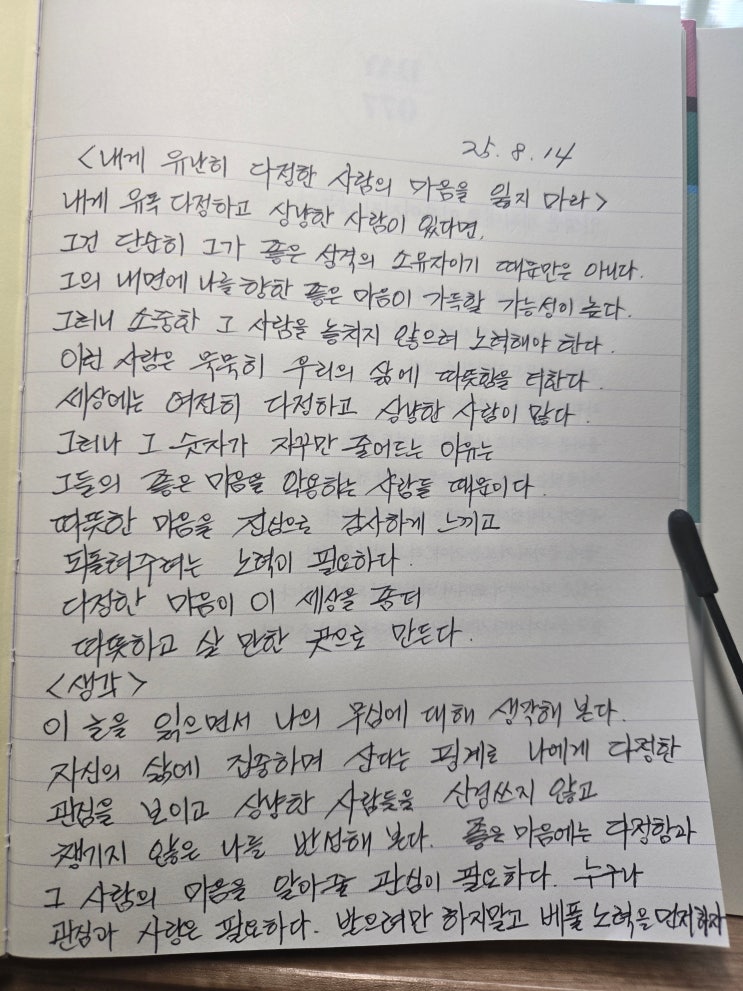 25. 8. 14
<내게 유난히 다정한 사람의 마음을 잃지 마라>
내게 유독 다정하고 상냥한 사람이 있다면,
그건 단순히 그가 좋은 성격의 소유자이기 때문만은 아니다.
그의 내면에 나를 향한 좋은 마음이 가득할 가능성이 높다.
그러니 소중한 그 사람을 놓치지 않으려 노력해야 한다.
이런 사람은 묵묵히 우리의 삶에 따뜻함을 더한다.
세상에는 여전히 다정하고 상냥한 사람이 많다.
그러나 그 숫자가 자꾸만 줄어드는 이유는
그들의 좋은 마음을 악용하는 사람들 때문이다.
따뜻한 마음을 진심으로 감사하게 느끼고
되돌려주려는 노력이 필요하다.
다정한 마음이 이 세상을 좀더
따뜻하고 살 만한 곳으로 만든다.
<생각>
이 글을 읽으면서 나의 무심에 대해 생각해 본다.
자신의 삶에 집중하며 산다는 핑계로 나에게 다정한
관심을 보이고 상냥한 사람들을 신경쓰지 않고
챙기지 않은 나를 반성해 본다. 좋은 마음에는 다정함과
그 사람의 마음을 알아줄 관심이 필요하다. 누구나
관심과 사랑은 필요하다. 받으려만 하지말고 베풀 노력을 먼저하자